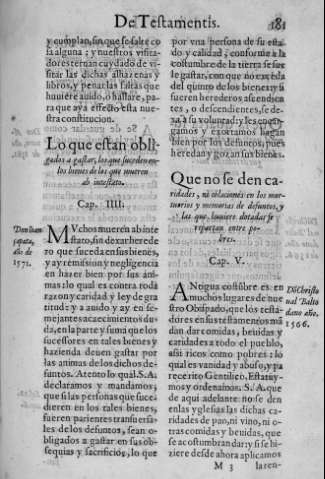 De Testamentis. 181
y cumplan, sin que se falte co
sa alguna: y nuestros visita
dores tengan cuydado de vi-
sitar las dichas
libros, y penar las faltas que
huuiere auido, o hallare, pa-
ra que aya effecto esta nue
stra constitucion.
Lo que estan obli
gados a gastar, los que suceden en
los bienes de los que mueren
ab intestato.
Cap. IIII.
Don Iuan
çapata,
año de
1571.
MVchos mueren ab inte
stato, sin dexar herede
ro que suceda en sus bienes,
y ay remission y negligencia
en hazer bien por sus ani-
mas: lo qual es contra toda
razon y caridad y ley de gra
titud: y a auido y ay en se-
mejantes acaecimientos du-
da, en la parte y suma que los
sucessores en tales bienes y
hazienda deuen gastar por
las animas de los dichos de-
funtos. Atento lo qual. S. A.
declaramos y mandamos,
que si las personas que suce-
dieren en los tales bienes,
fueren parientes transuersa-
les de los defuntos, sean o-
bligados a gastar en sus ob-
sequias y sacrificios, lo que
por vna persona de su esta-
do y calidad, conforme a la
costumbre de la tierra se sue
le gastar, con que no exceda
del quinto de los bienes: y si
fueren herederos ascenden-
tes, o descendientes, se de-
xa a su voluntad: y les encar-
gamos y exortamos hagan
bien por los defuntos, pues
heredan y gozan sus bienes.
Que no se den ca
ridades, ni colaciones en los mor-
tuorios y memorias de defuntos, y
las que houiere dotadas se
repartan entre po-
bres.
Cap. V.
Dõ Christo
ual Balto
dano año,
1566.
ANtigua costũbre es en
muchos lugares de nue
stro Obispado, que los testa-
dores en sus testamentos mã
dan dar comidas, bebidas, y
caridades a todo el pueblo,
assi ricos como pobres: lo
qual es vanidad y abuso, y pa
rece rito Gentilico. Estatuy-
mos y ordenamos. S. A. que
de aqui adelante no se den
en las yglesias las dichas ca-
ridades de pan, ni vino, ni o-
tras comidas y beuidas, que
se acostumbran dar: y si se hi-
ziere desde ahora aplicamos
M 3 la ren-